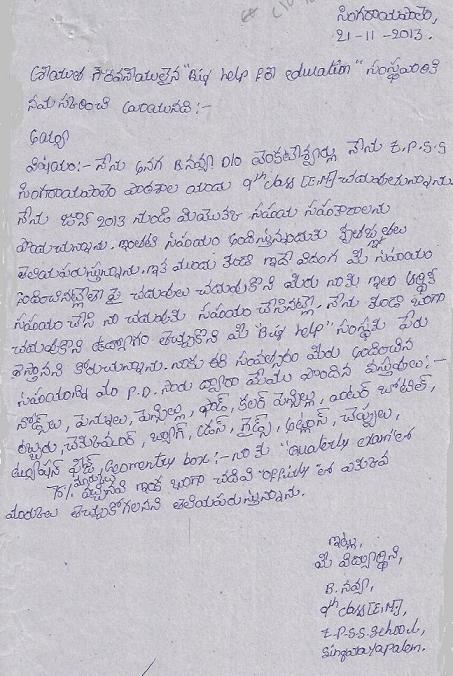 సింగరాయపాలెం,
21-11-2013.
శ్రీయుత గౌరవనీయులైన "Big help for education" సంస్థవారికి
నమస్కరించి వ్రాయునది :-
అయ్యా
విషయం :- నేను అనగా B.నవ్యా D/o వెంకటేశ్వర్లు నేను Z.P.S.S
సింగరాయపాలెం పాఠశాల యందు 9th class [E.M] చదువుచున్నాను.
నేను జూన్ 2013 నుండి మీయొక్క సహాయ సహకారాలను
పొందుచున్నాను. ఇంతటి సహాయం అందిస్తున్నందుకు కృతజ్ఞతలు
తెలియపరుస్తున్నాను. ఇక ముందు కూడా ఇదే విధంగా మీ సహాయం
అందించినట్లైతే పై చదువులు చదువుకొని మీరు నాకు ఇలా ఆర్థిక
సహాయం చేసి నా చదువుకు సహాయం చేసినట్లే. నేను కూడా బాగా
చదువుకొని ఉద్యోగం తెచ్చుకొని మీ "Big help" సంస్థకు పేరు
తెస్తానని కోరుచున్నాను. నాకు ఈ సంవత్సరం మీరు అందించిన
సహాయనిధి మా P.D. సారు ద్వారా మేము పొందిన వస్తువులు :-
నోట్సులు, పెన్నులు, పెన్సిల్లు, ప్యాడ్, కలర్ పెన్సిల్లు, వాటర్ బాటిల్,
రబ్బరు, చెకుముందర్, బ్యాగ్, డ్రస్, గైడ్స్, అట్లాస్, చెప్పులు,
ట్యూషన్ ఫీజ్, Geomentry box :- నాకు "Quaterly exam" లో
76% మార్కులు వచ్చినవి ఇంకా బాగా చదివి "Offiuly" లో ఎక్కువ
మార్కులు తెచ్చుకోగలనని తెలియపరుస్తున్నాను.
ఇట్లు,
మీ విద్యార్థిని,
B. నవ్యా,
9th class [E.M],
Z.P.S.S. School,
Singarayapalem.